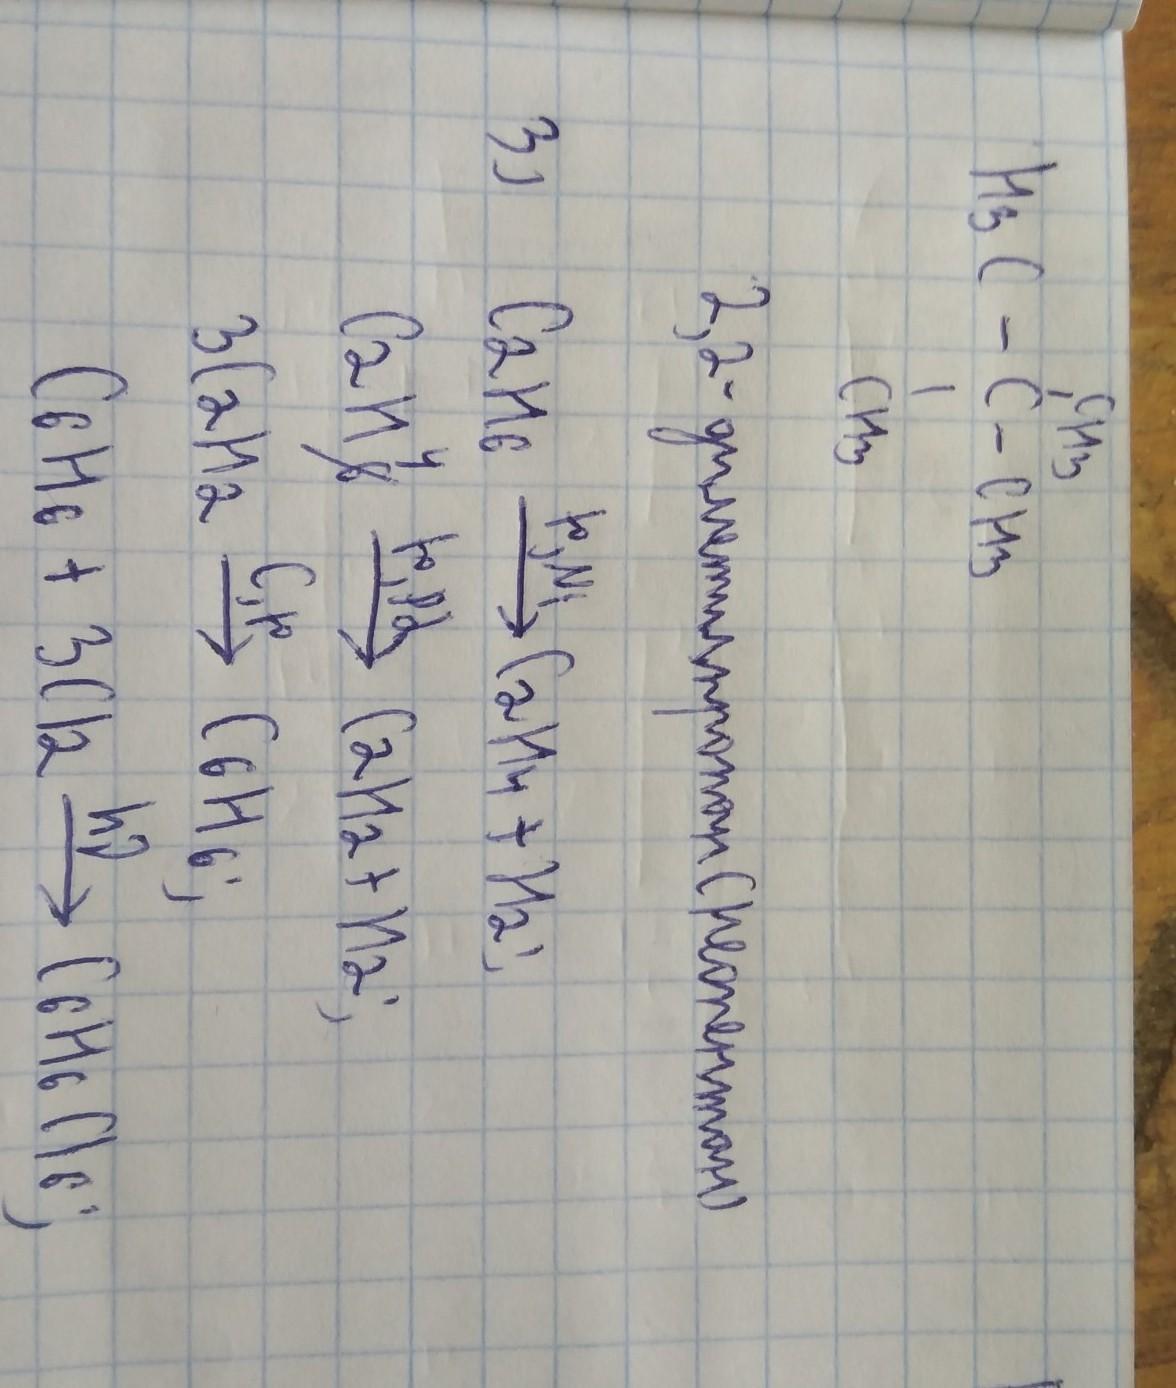 CH3
H3C - C - CH3
CH3
2,2-диметилпропан (неопентан)
3) C2H6 → t°, Ni C2H4 + H2;
C2H4 → t°, Pd C2H2 + H2;
3C2H2 → C, t° C6H6;
C6H6 + 3Cl2 → hν C6H6Cl6;